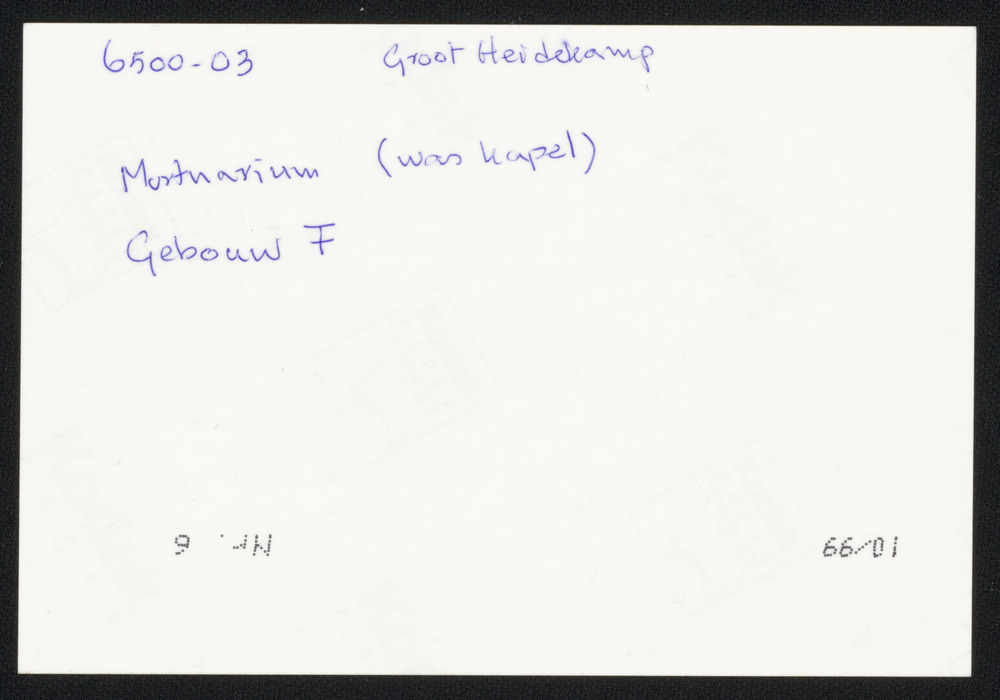 6500-03 Groot Heidekamp
Mortuarium (was kapel)
Gebouw F
10/99 Nr. 6